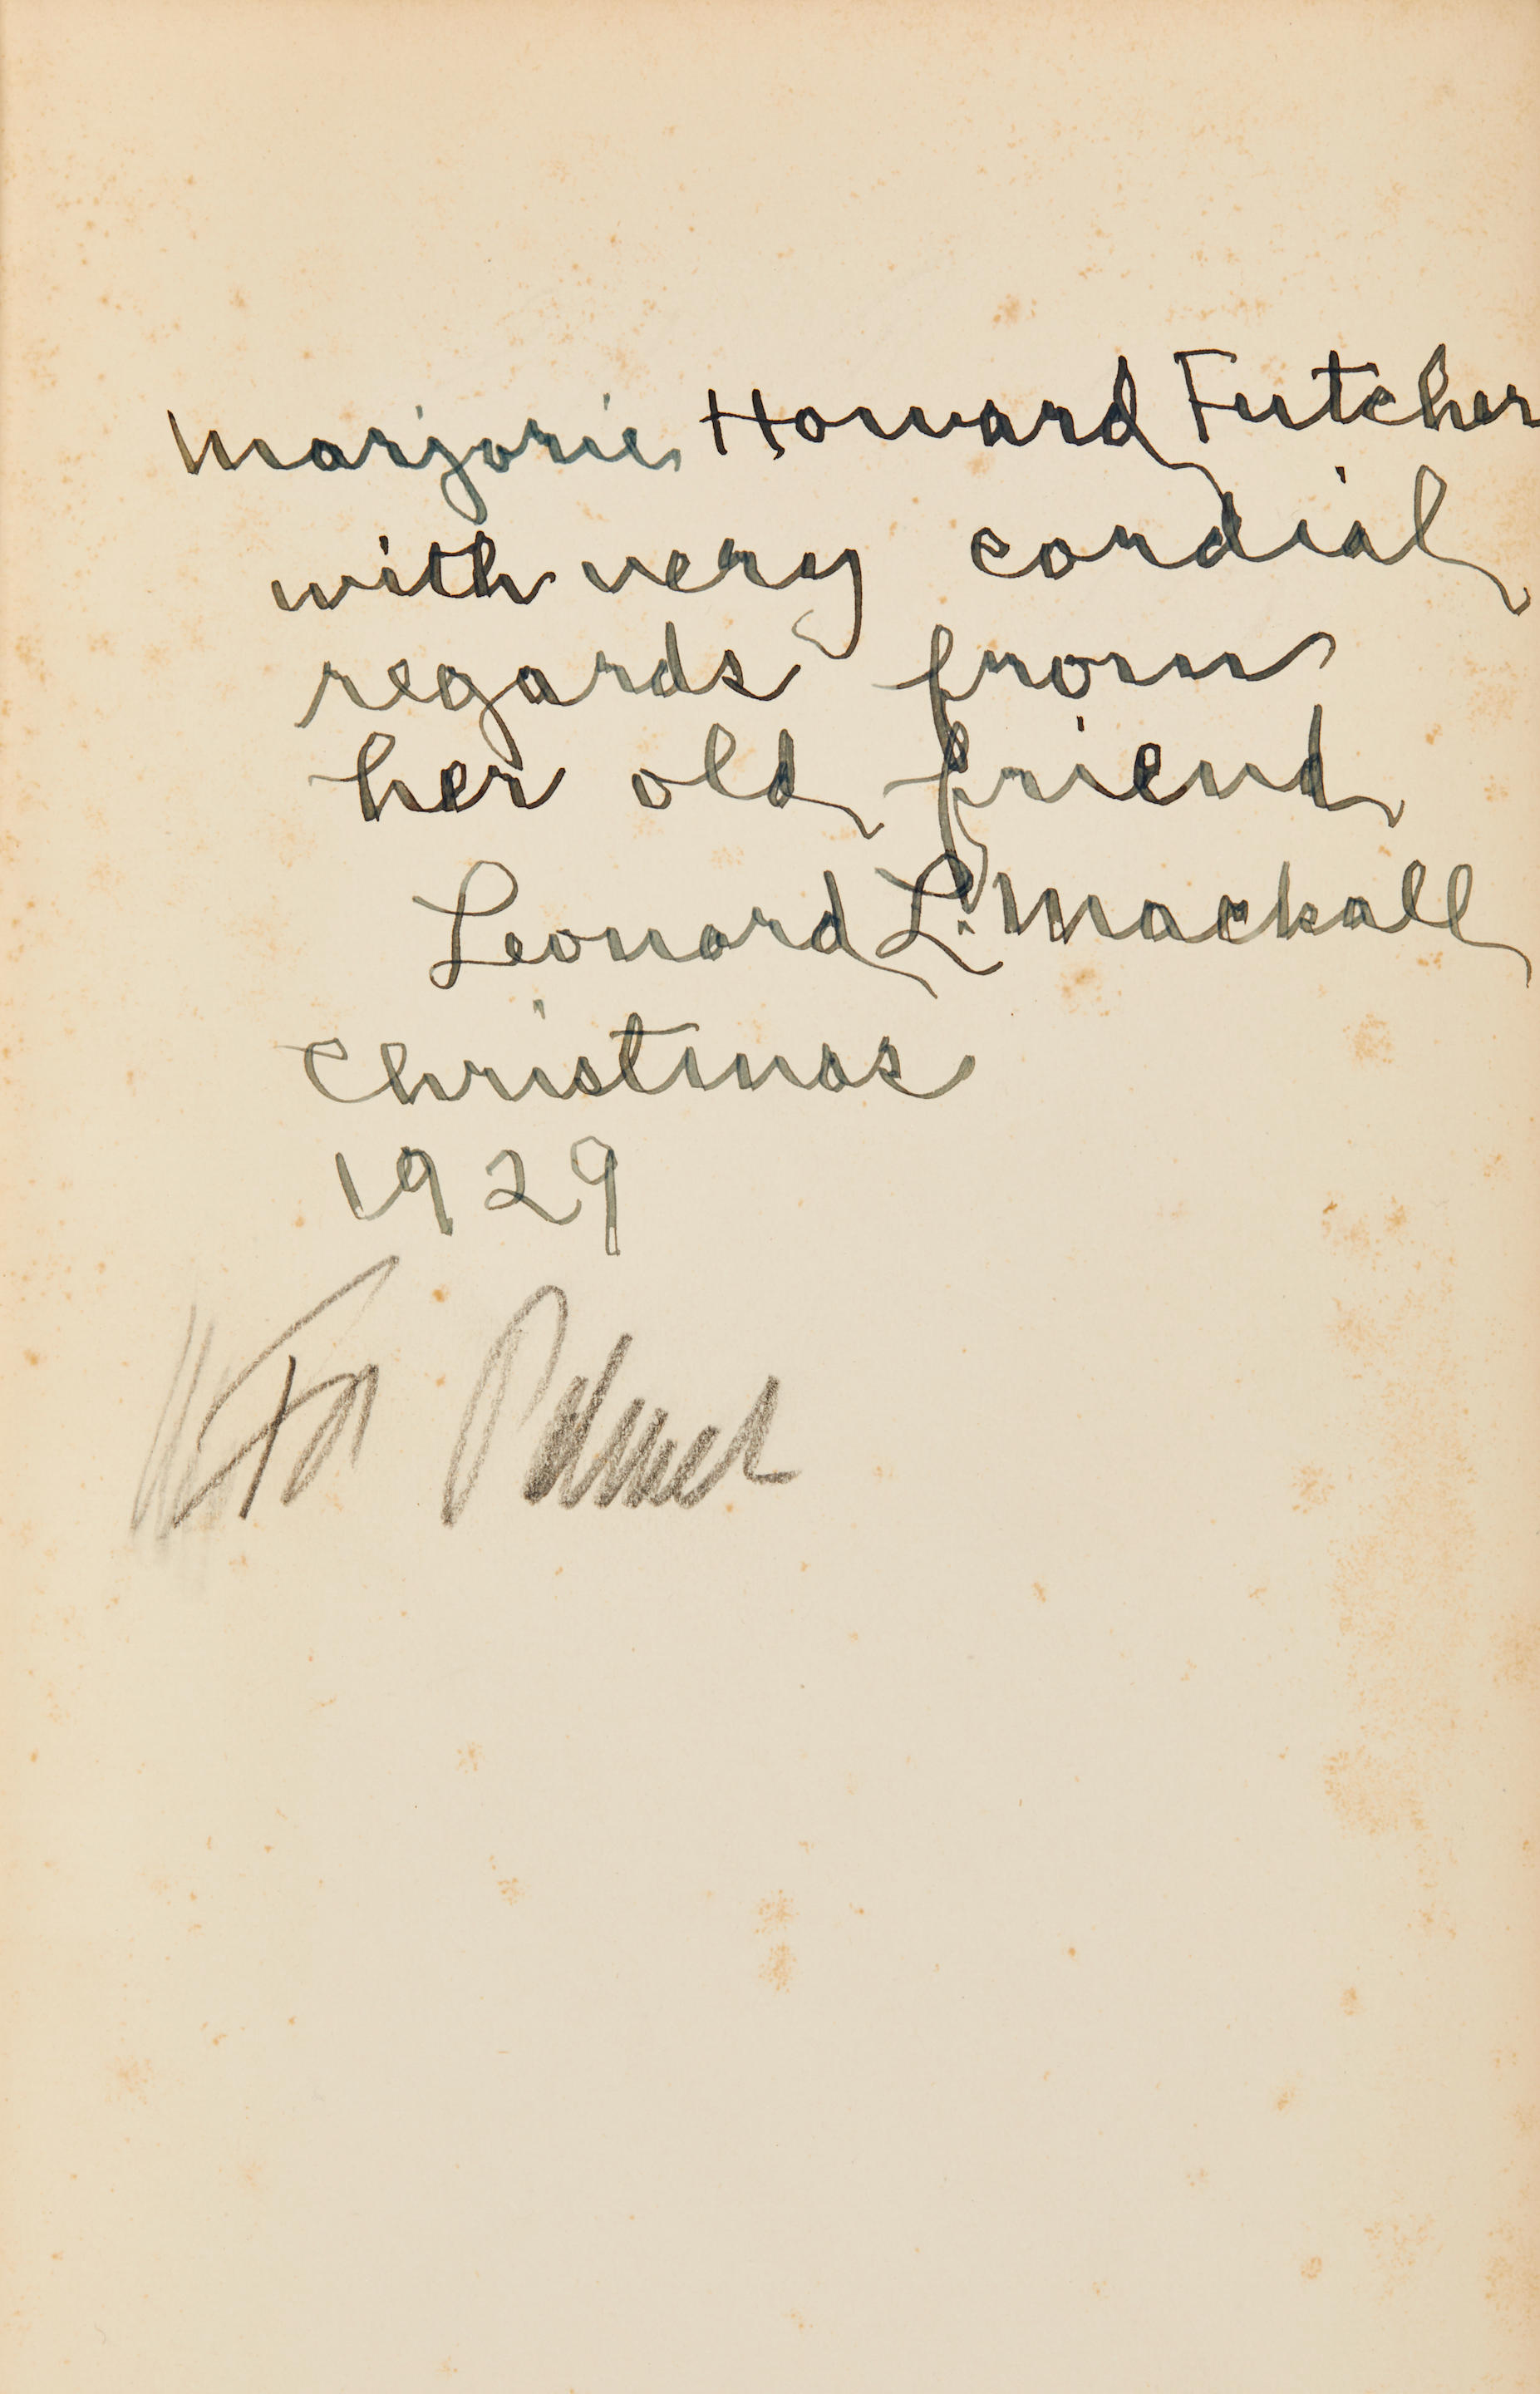 Marjorie Howard Futcher
with very cordial
regards from
her old friend
Leonard L. Mackall
Christmas
1929
For Palmer